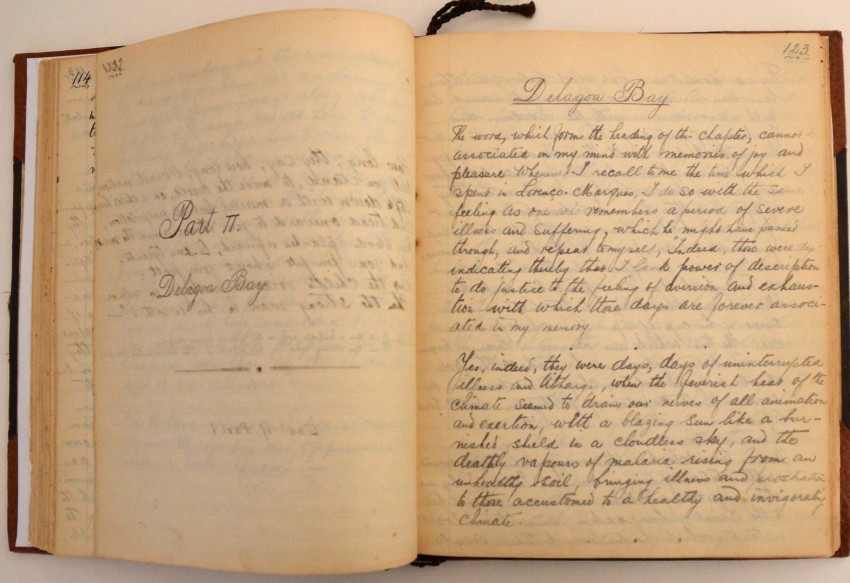 114
Part II.
Delagoa Bay
123
Delagoa Bay
The word, which forms the heading of this chapter, cannot
associated in my mind with memories of joy and
pleasure. Whenever I recall to me the time which I
spent in Lorenço-Marques, I do so with the same
feeling as one who remembers a period of severe
illness and suffering, which he might have passed
through, and repeat to myself, Indeed, those were days
indicating thereby that I lack power of description
to do justice to the feeling of aversion and exhaus-
tion with which those days are forever associ-
ated in my memory.
Yes, indeed, they were days, days of uninterrupted
illness and lethargy, when the feverish heat of the
climate seemed to drain our nerves of all animation
and exertion, with a blazing sun like a bur-
nished shield in a cloudless sky, and the
deathly vapours of malaria rising from an
unhealthy soil, bringing illness and prostration
to those accustomed to a healthy and invigorating
climate.